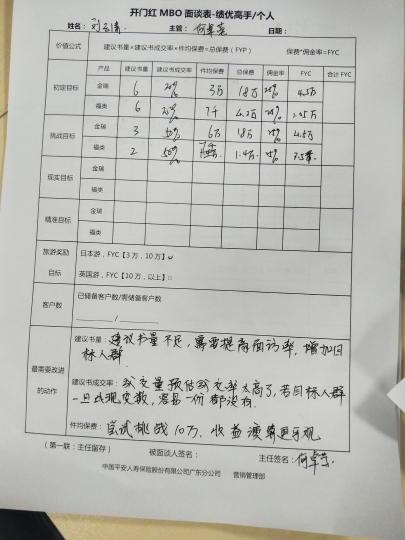 开门红 MBO 面谈表-绩优高手/个人
姓名： 主管： 日期：
价值公式 建议书量×建议书成交率×件均保费=总保费（FYP） 保费*佣金率=FYC
产品 建议书量 建议书成交率 件均保费 总保费 佣金率 FYC 合计 FYC
初定目标 金瑞 6 3万 18万 25% 4.5万
福类 6 7千 4.2万
挑战目标 金瑞 3 50% 6万 18万 25% 4.5万
福类 2 50% 1.4万
现实目标 金瑞
福类
精准目标 金瑞
福类
旅游奖励 日本游，FYC【3万，10万】
目标 英国游，FYC【10万，以上】□
客户数 已储备客户数/需储备客户数
/
最需要改进的动作 建议书量：建议书量不足，需要提高面访率，增加目
标人群
建议书成交率：成交量预估成交率太高了，若目标人群
一旦出现变数，容易一份都没有.
件均保费：尝试挑战10万，收益会更乐观
（第一联：主任留存） 被面谈人签名： 主任签名：
中国平安人寿保险股份有限公司广东分公司 营销管理部